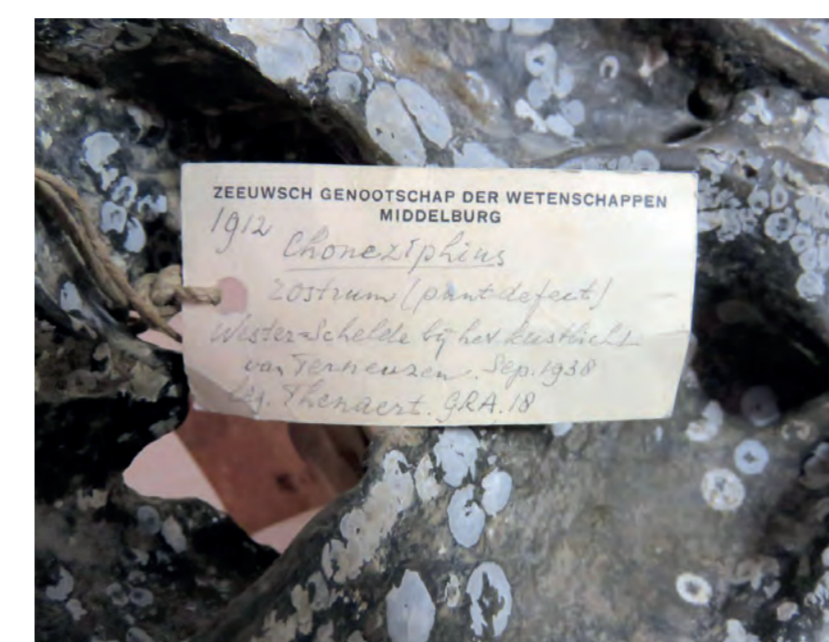 ZEEUWSCH GENOOTSCHAP DER WETENSCHAPPEN
MIDDELBURG
1912
Choneziphius
rostrum (punt defect)
Wester-Schelde bij het kustlicht
van Terneuzen. Sep. 1938
leg. Thenaert. GRA. 18